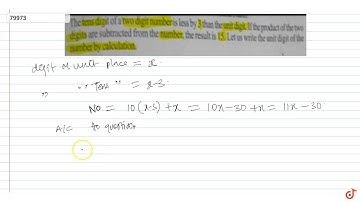 79973
The tens digit of a two digit number is less by 3 than the unit digit. If the product of the two
digits are subtracted from the number, the result is 15. Let us write the unit digit of the
number by calculation.
digit at unit place = x.
" " " Tens " = x-3.
No = 10(x-3)+x = 10x-30+x = 11x-30
A/C to question